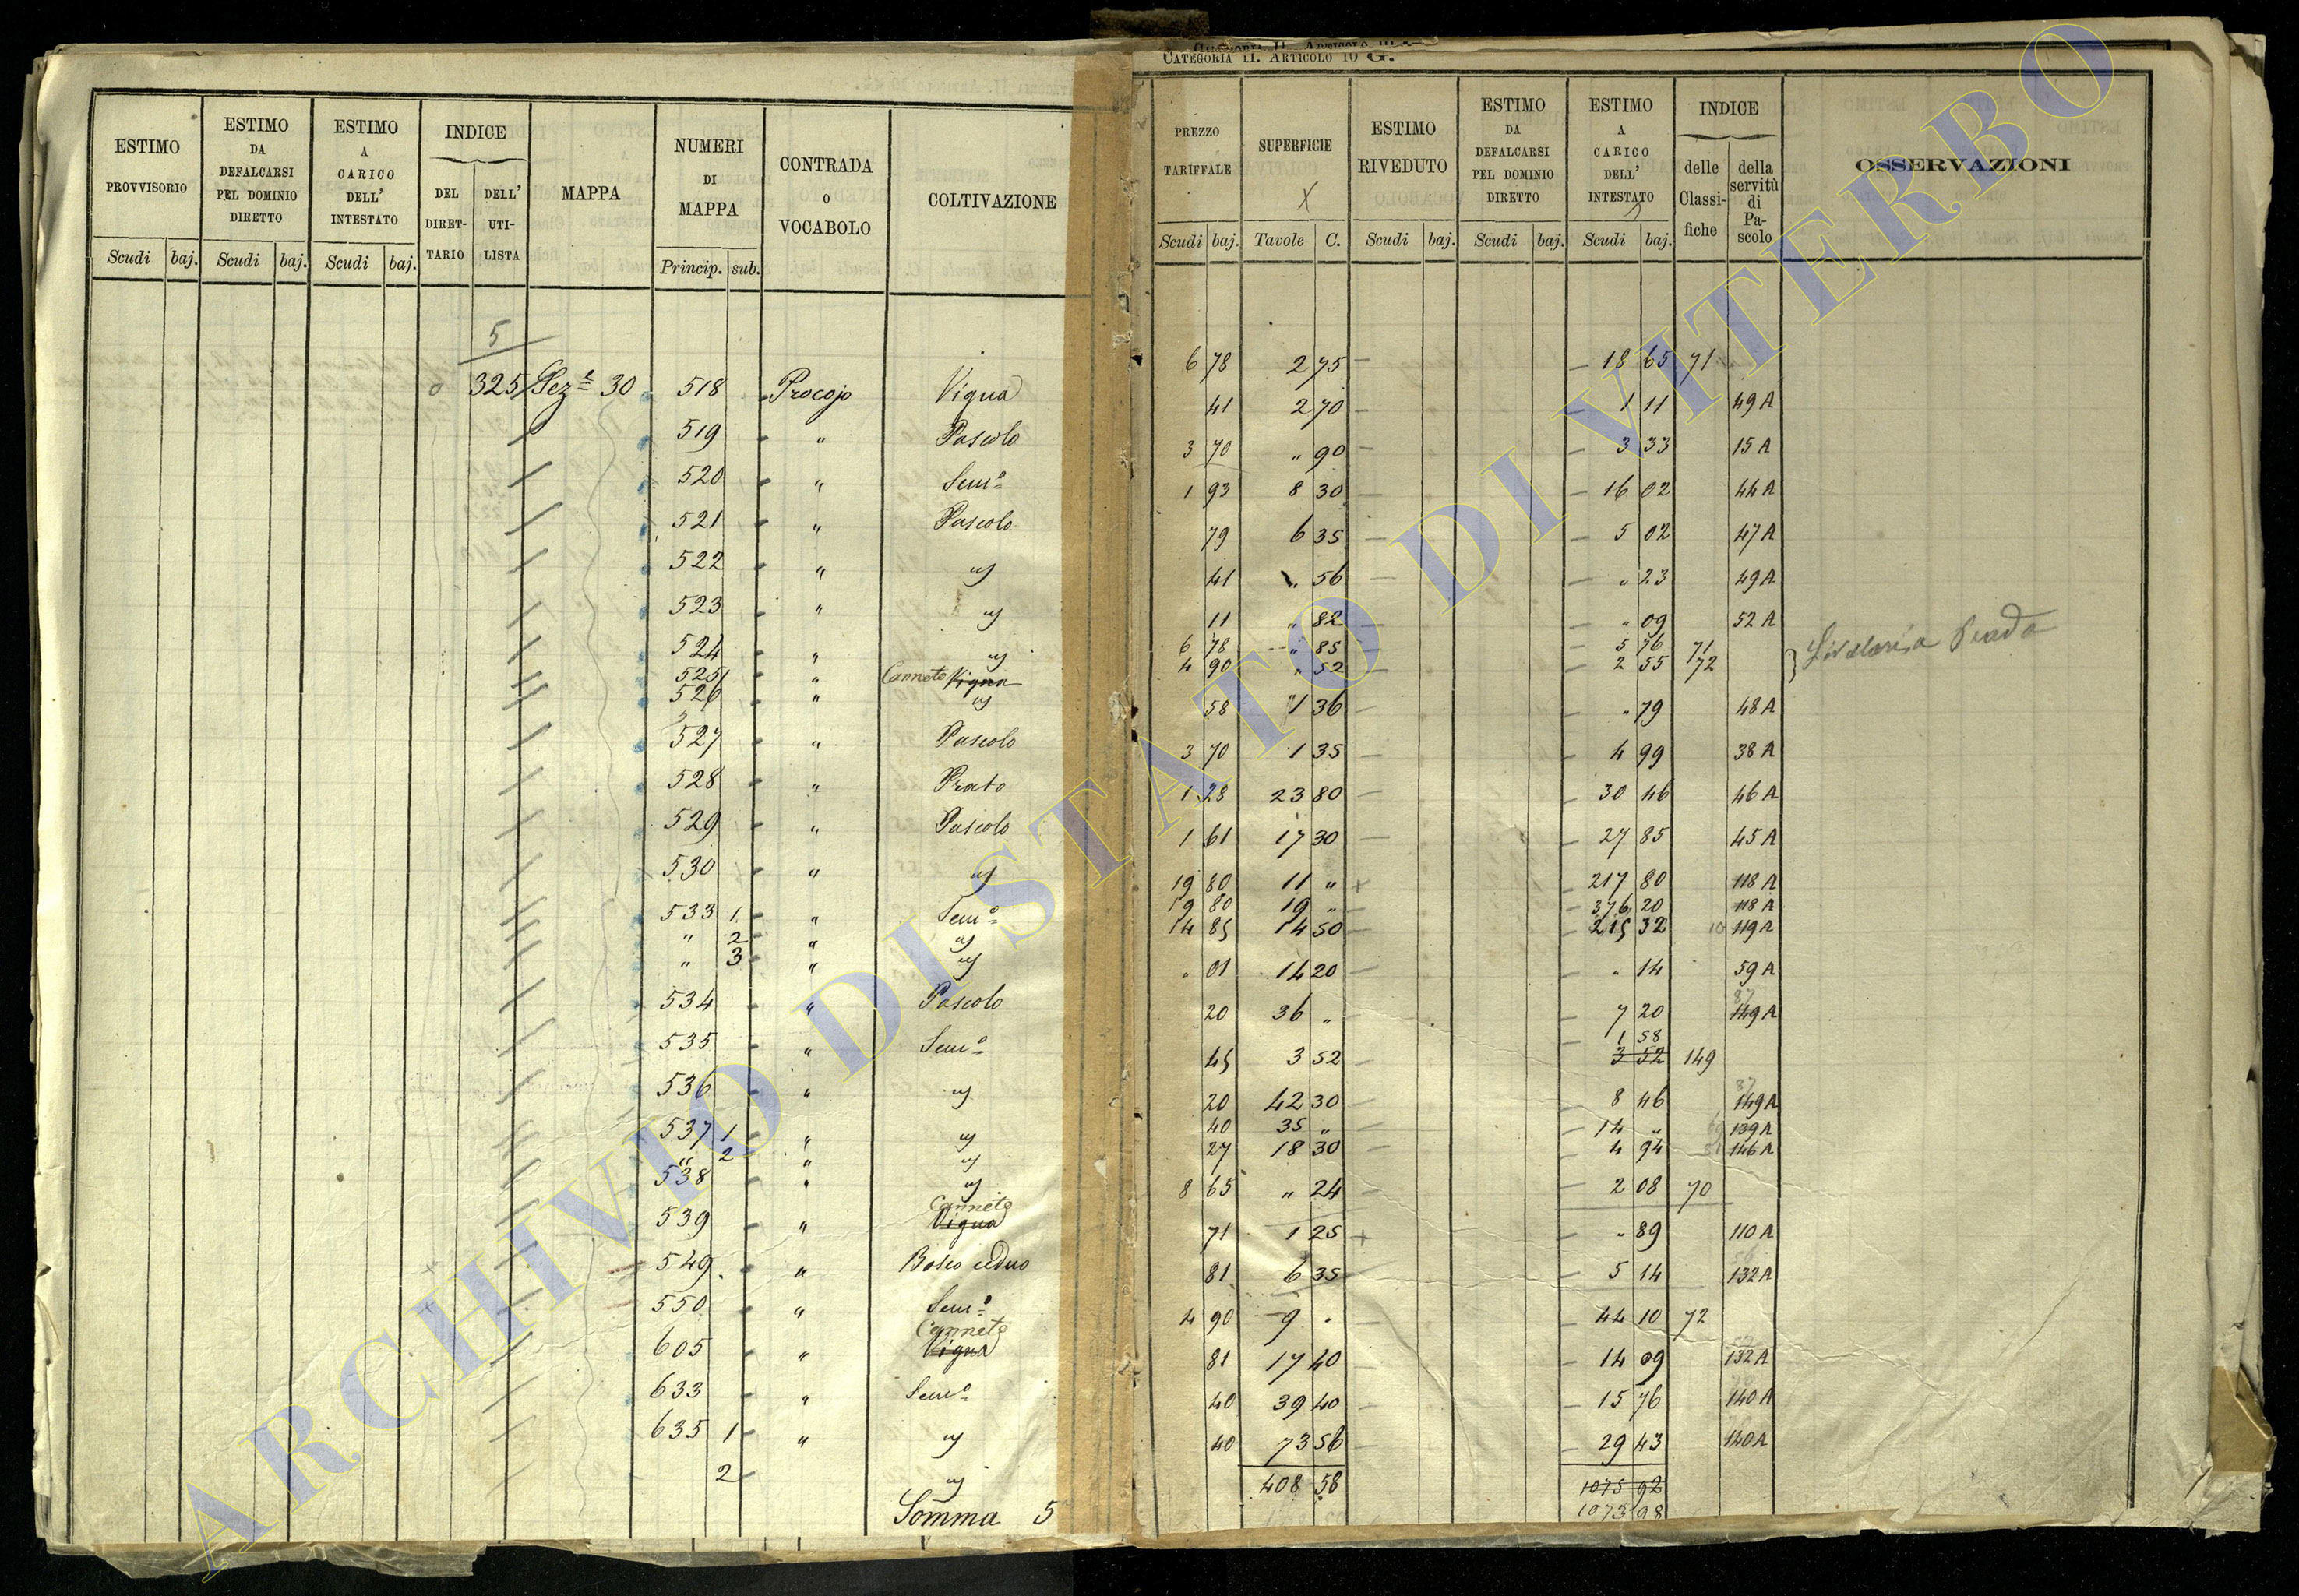 CATEGORIA II. ARTICOLO 10 G.
ESTIMO PROVVISORIO Scudi baj.
ESTIMO DA DEFALCARSI PEL DOMINIO DIRETTO Scudi baj.
ESTIMO A CARICO DELL' INTESTATO Scudi baj.
INDICE DEL DIRET-TARIO DELL' UTI-LISTA
MAPPA
NUMERI DI MAPPA Princip. sub.
CONTRADA O VOCABOLO
COLTIVAZIONE
PREZZO TARIFFALE Scudi baj.
SUPERFICIE Tavole C.
ESTIMO RIVEDUTO Scudi baj.
ESTIMO DA DEFALCARSI PEL DOMINIO DIRETTO Scudi baj.
ESTIMO A CARICO DELL' INTESTATO Scudi baj.
INDICE delle Classi-fiche della servitù di Pa-scolo
OSSERVAZIONI
5
325 Sez.e 30 518 Procojo Vigna 6 78 2 75 — — 18 65 71
519 " Pascolo 41 2 70 — — 1 11 49 A
520 " Sem.o 3 70 " 90 — — 3 33 15 A
521 " Pascolo 1 93 8 30 — — 16 02 44 A
522 " " 79 6 35 — — 5 02 47 A
523 " " 41 " 56 — — " 23 49 A
524 " " 11 " 82 — — " 09 52 A
525 " Canneto Vigna 6 78 " 85 — 5 76 71
526 " " 4 90 " 52 — — 2 55 72
527 " Pascolo 58 1 36 — — " 79 48 A
528 " Prato 3 70 1 35 — — 4 99 38 A
529 " Pascolo 1 28 23 80 — — 30 46 46 A
530 " " 1 61 17 30 — — 27 85 45 A
533 1 " Sem.o 19 80 11 " + — 217 80 118 A
" 2 " " 19 80 19 " — — 376 20 118 A
" 3 " " 14 85 14 50 — — 215 32 119 A
534 " Pascolo " 01 14 20 — — " 14 59 A
535 " Sem.o 20 36 " — 7 20 149 A
1 58
536 " " 45 3 52 — 3 52 149
537 1 " " 20 42 30 — — 8 46 149 A
" 2 " " 40 35 " — — 14 " 139 A
538 " " 27 18 30 — — 4 94 146 A
539 " Canneto Vigna 8 65 " 24 — — 2 08 70
549 " Bosco ceduo 71 1 25 + — " 89 110 A
550 " Sem.o 81 6 35 — — 5 14 132 A
605 " Canneto Vigna 4 90 9 " — — 44 10 72
633 " Sem.o 81 17 40 — — 14 09 132 A
635 1 " " 40 39 40 — — 15 76 140 A
2 " 40 73 56 — — 29 43 140 A
Somma 5 408 58 1075 92
1073 98
ARCHIVIO DI STATO DI VITERBO